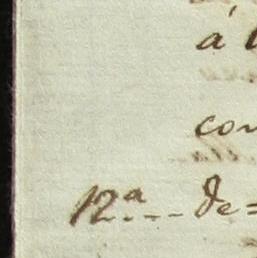 á
con
12ª....De=